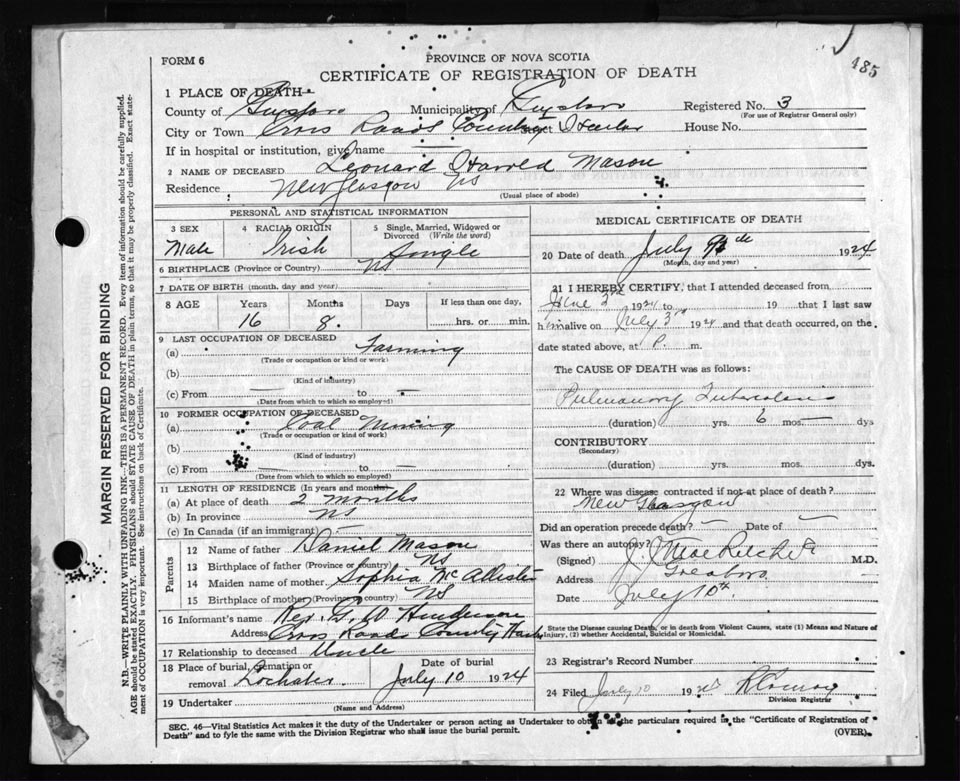 485
FORM 6
PROVINCE OF NOVA SCOTIA
CERTIFICATE OF REGISTRATION OF DEATH
1 PLACE OF DEATH
County of Guysboro Municipality of Guysboro Registered No. 3
(For use of Registrar General only)
City or Town Cross Roads Country Harbor House No.
If in hospital or institution, give name —
2 NAME OF DECEASED Leonard Harrold Mason
Residence New Glasgow NS
(Usual place of abode)
PERSONAL AND STATISTICAL INFORMATION
3 SEX 4 RACIAL ORIGIN 5 Single, Married, Widowed or Divorced (Write the word)
Male Irish Single
6 BIRTHPLACE (Province or Country) NS
7 DATE OF BIRTH (month, day and year)
8 AGE Years Months Days If less than one day,
16 8. hrs. or min.
9 LAST OCCUPATION OF DECEASED
(a) Farming
(Trade or occupation or kind or work)
(b)
(Kind of industry)
(c) From — to —
(Date from which to which so employed)
10 FORMER OCCUPATION OF DECEASED
(a) Coal Mining
(Trade or occupation or kind of work)
(b)
(Kind of industry)
(c) From — to —
(Date from which to which so employed)
11 LENGTH OF RESIDENCE (In years and months)
(a) At place of death 2 months
(b) In province NS
(c) In Canada (if an immigrant) —
Parents
12 Name of father Daniel Mason
13 Birthplace of father (Province or country) NS
14 Maiden name of mother Sophia McAllister
15 Birthplace of mother (Province or country) NS
16 Informant's name Rev. G. W Henderson
Address Cross Roads Country Harbor
17 Relationship to deceased Uncle
18 Place of burial, cremation or removal Lochaber. Date of burial July 10 1924
19 Undertaker
(Name and Address)
MEDICAL CERTIFICATE OF DEATH
20 Date of death July 9th 1924
(Month, day and year)
21 I HEREBY CERTIFY, that I attended deceased from
June 2nd 1924 to 19 that I last saw
him alive on July 3rd 1924 and that death occurred, on the
date stated above, at P. m.
The CAUSE OF DEATH was as follows:
Pulmonary Tuberculosis
(duration) yrs. 6 mos. — dys
CONTRIBUTORY
(Secondary)
(duration) yrs. mos. dys.
22 Where was disease contracted if not at place of death?
New Glasgow
Did an operation precede death? — Date of —
Was there an autopsy?
(Signed) M.D.
Address
Date July 10th.
State the Disease causing Death, or in death from Violent Causes, state (1) Means and Nature of
Injury, (2) whether Accidental, Suicidal or Homicidal.
23 Registrar's Record Number
24 Filed July 10 192
Division Registrar
SEC. 46—Vital Statistics Act makes it the duty of the Undertaker or person acting as Undertaker to obtain the particulars required in the "Certificate of Registration of
Death" and to fyle the same with the Division Registrar who shall issue the burial permit. (OVER).
MARGIN RESERVED FOR BINDING
N.B.—WRITE PLAINLY WITH UNFADING INK—THIS IS A PERMANENT RECORD. Every item of information should be carefully supplied.
AGE should be stated EXACTLY. PHYSICIANS should STATE CAUSE OF DEATH in plain terms, so that it may be properly classified. Exact state-
ment of OCCUPATION is very important. See instructions on back of Certificate.